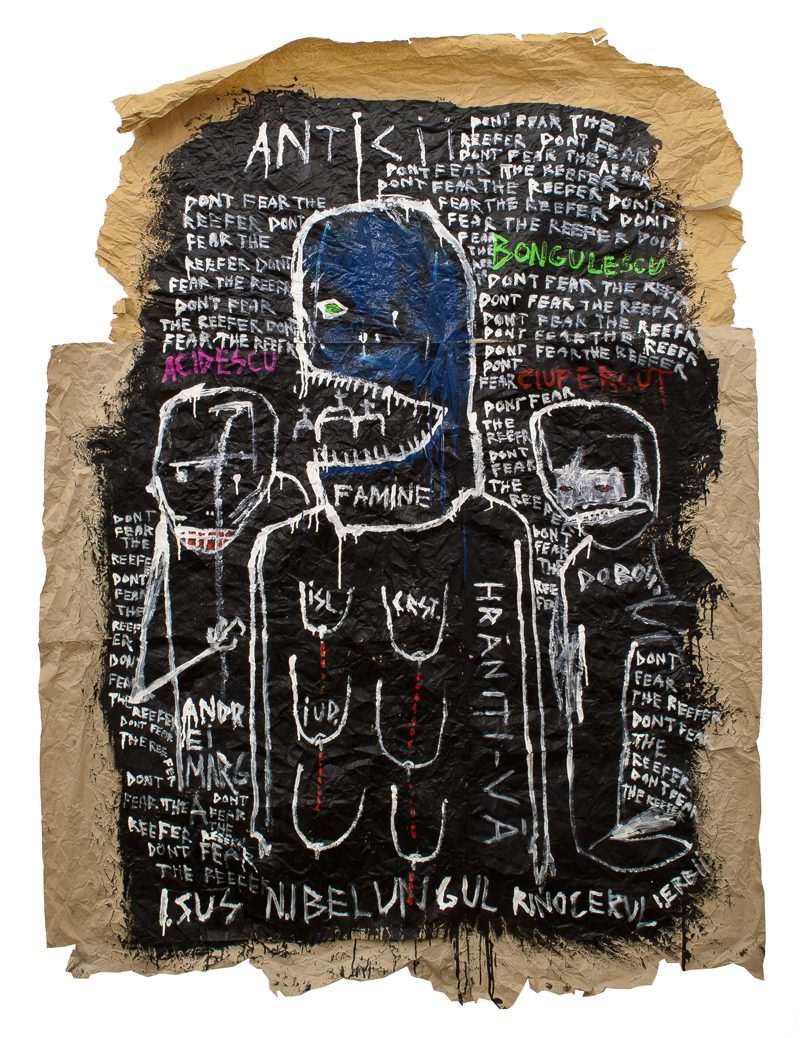 ANTICII
DONT FEAR THE
REEFER DONT FEAR
DONT FEAR THE REEFER
DONT FEAR THE REEFER
DONT FEAR THE REEFER DONT
FEAR THE REEFER DONT
FEAR THE REEFER DONT
FEAR
THE
BONGULESCU
DONT FEAR THE REEFR
DONT FEAR THE REEFER
DONT FEAR THE REEFR
DONT FEAR THE REEFR
DONT FEAR THE REEFER
DONT
FEAR
CIUPERCUT
DONT FEAR
THE
REEFR
DONT
FEAR
THE
REEFER
DONT
FEAR
THE
REE
FER
DONT FEAR THE
REEFER DONT
FEAR THE
REEFER DONT
FEAR THE REEFR
DONT FEAR
THE REEFER DONT
FEAR THE REEFR
ACIDESCU
FAMINE
ISL.
CRST.
IUD.
HRĂNIȚI-VĂ
DOBOȘ
DONT
FEAR
THE
REEFE
DONT
FEAR
THE
REEF
ER
DONT
FEAR
THE
REEFER
DONT FEAR
THE REE
FER
DONT
FEAR THE
REEFER
DONT FEAR
THE REEFER
ANDR
EI
MARG
A
DONT
FEAR
THE
REEFER
DONT
FEAR
THE REEFER
DONT FEAR
THE
REEFER
DONT FEAR
THE REEFER
I.SUS N.IBELUNGUL RINOCERUL IERBII